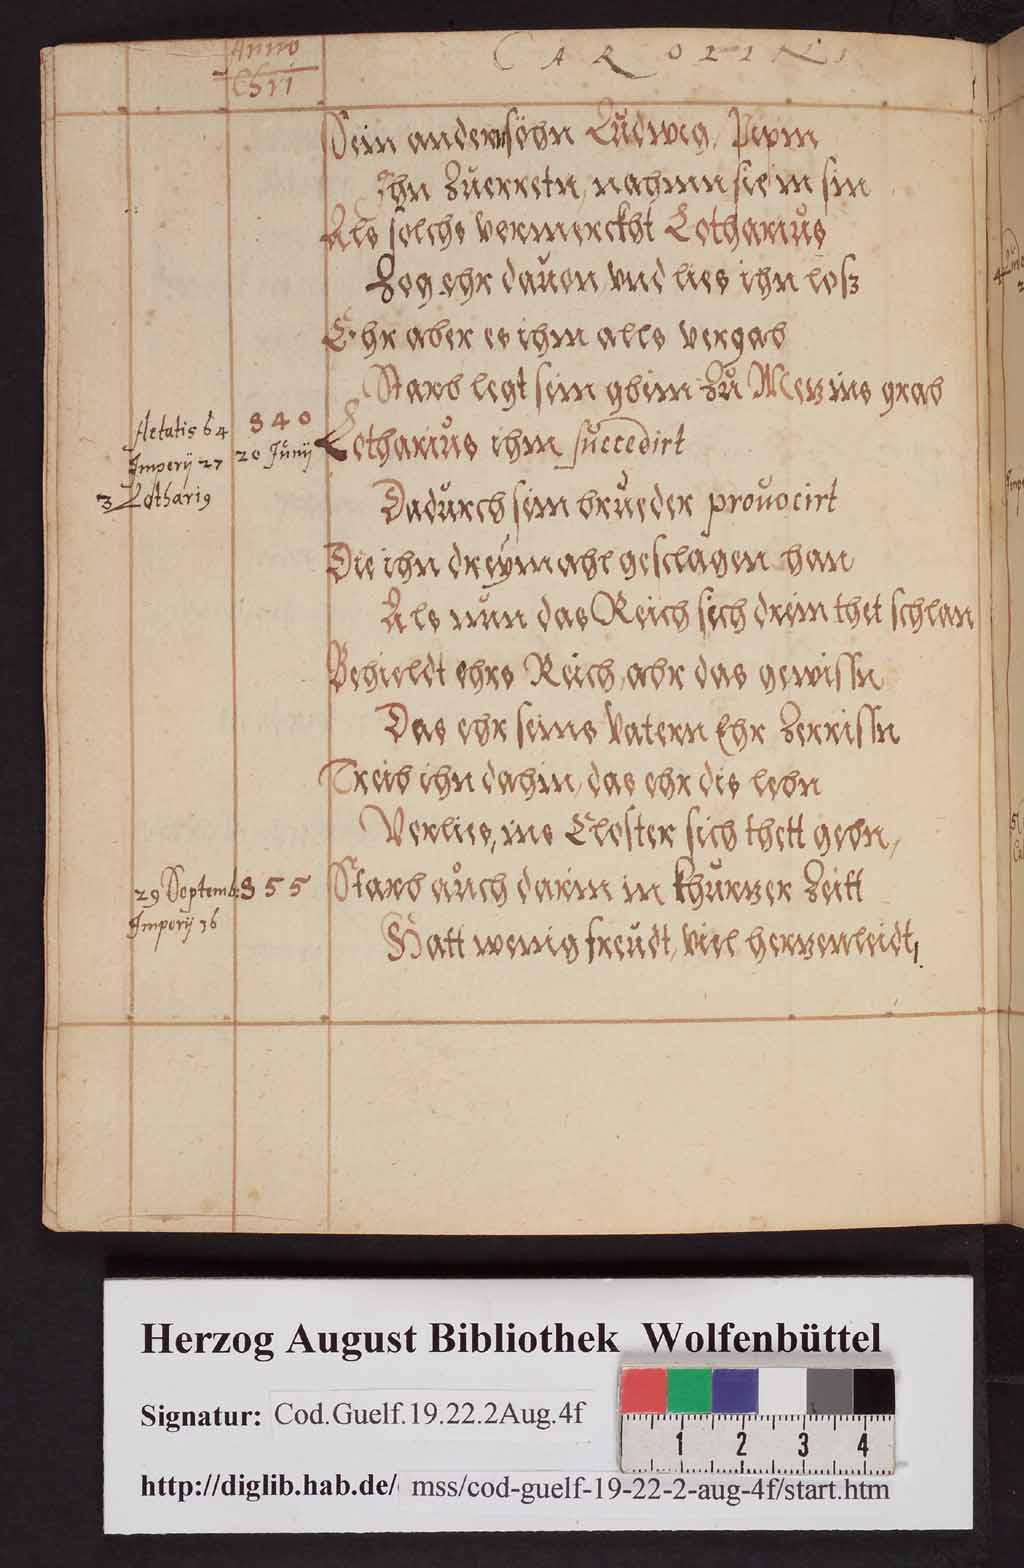 Anno
Chri
CAROLINI
Sein andern söhn Ludwig, Pipin
Ihn Zuerretn, nahmn sie in sin
Als solchs vermerckht Lotharius
Zog ehr dauon, vnd lies ihn losz
Ehr aber es ihm alls vergab
Starb legt sein gbein zu Metz ins grab
Aetatis 64
840
Lotharius ihm succedirt
Imperij 27
20 Junij
3 Lothari9
Dadurch sein brueder prouocirt
Die ihn dreymahl gesclagen han
Als nun das Reich sich drein thet schlan
Behieldt ehrs Reich, abr das gewissn
Das ehr seins Vatern Ehr Zerrissn
Treib ihn dahin, das ehr dis lebn
Verlies, ins Closter sich thett gebn,
29 Septemb.
855
Starb auch darin in khurtzer Zeitt
Imperij 16
Hatt wenig freudt, viel hertzenleidt,
Herzog August Bibliothek Wolfenbüttel
Signatur: Cod.Guelf.19.22.2Aug.4f
http://diglib.hab.de/ mss/cod-guelf-19-22-2-aug-4f/start.htm
1 2 3 4